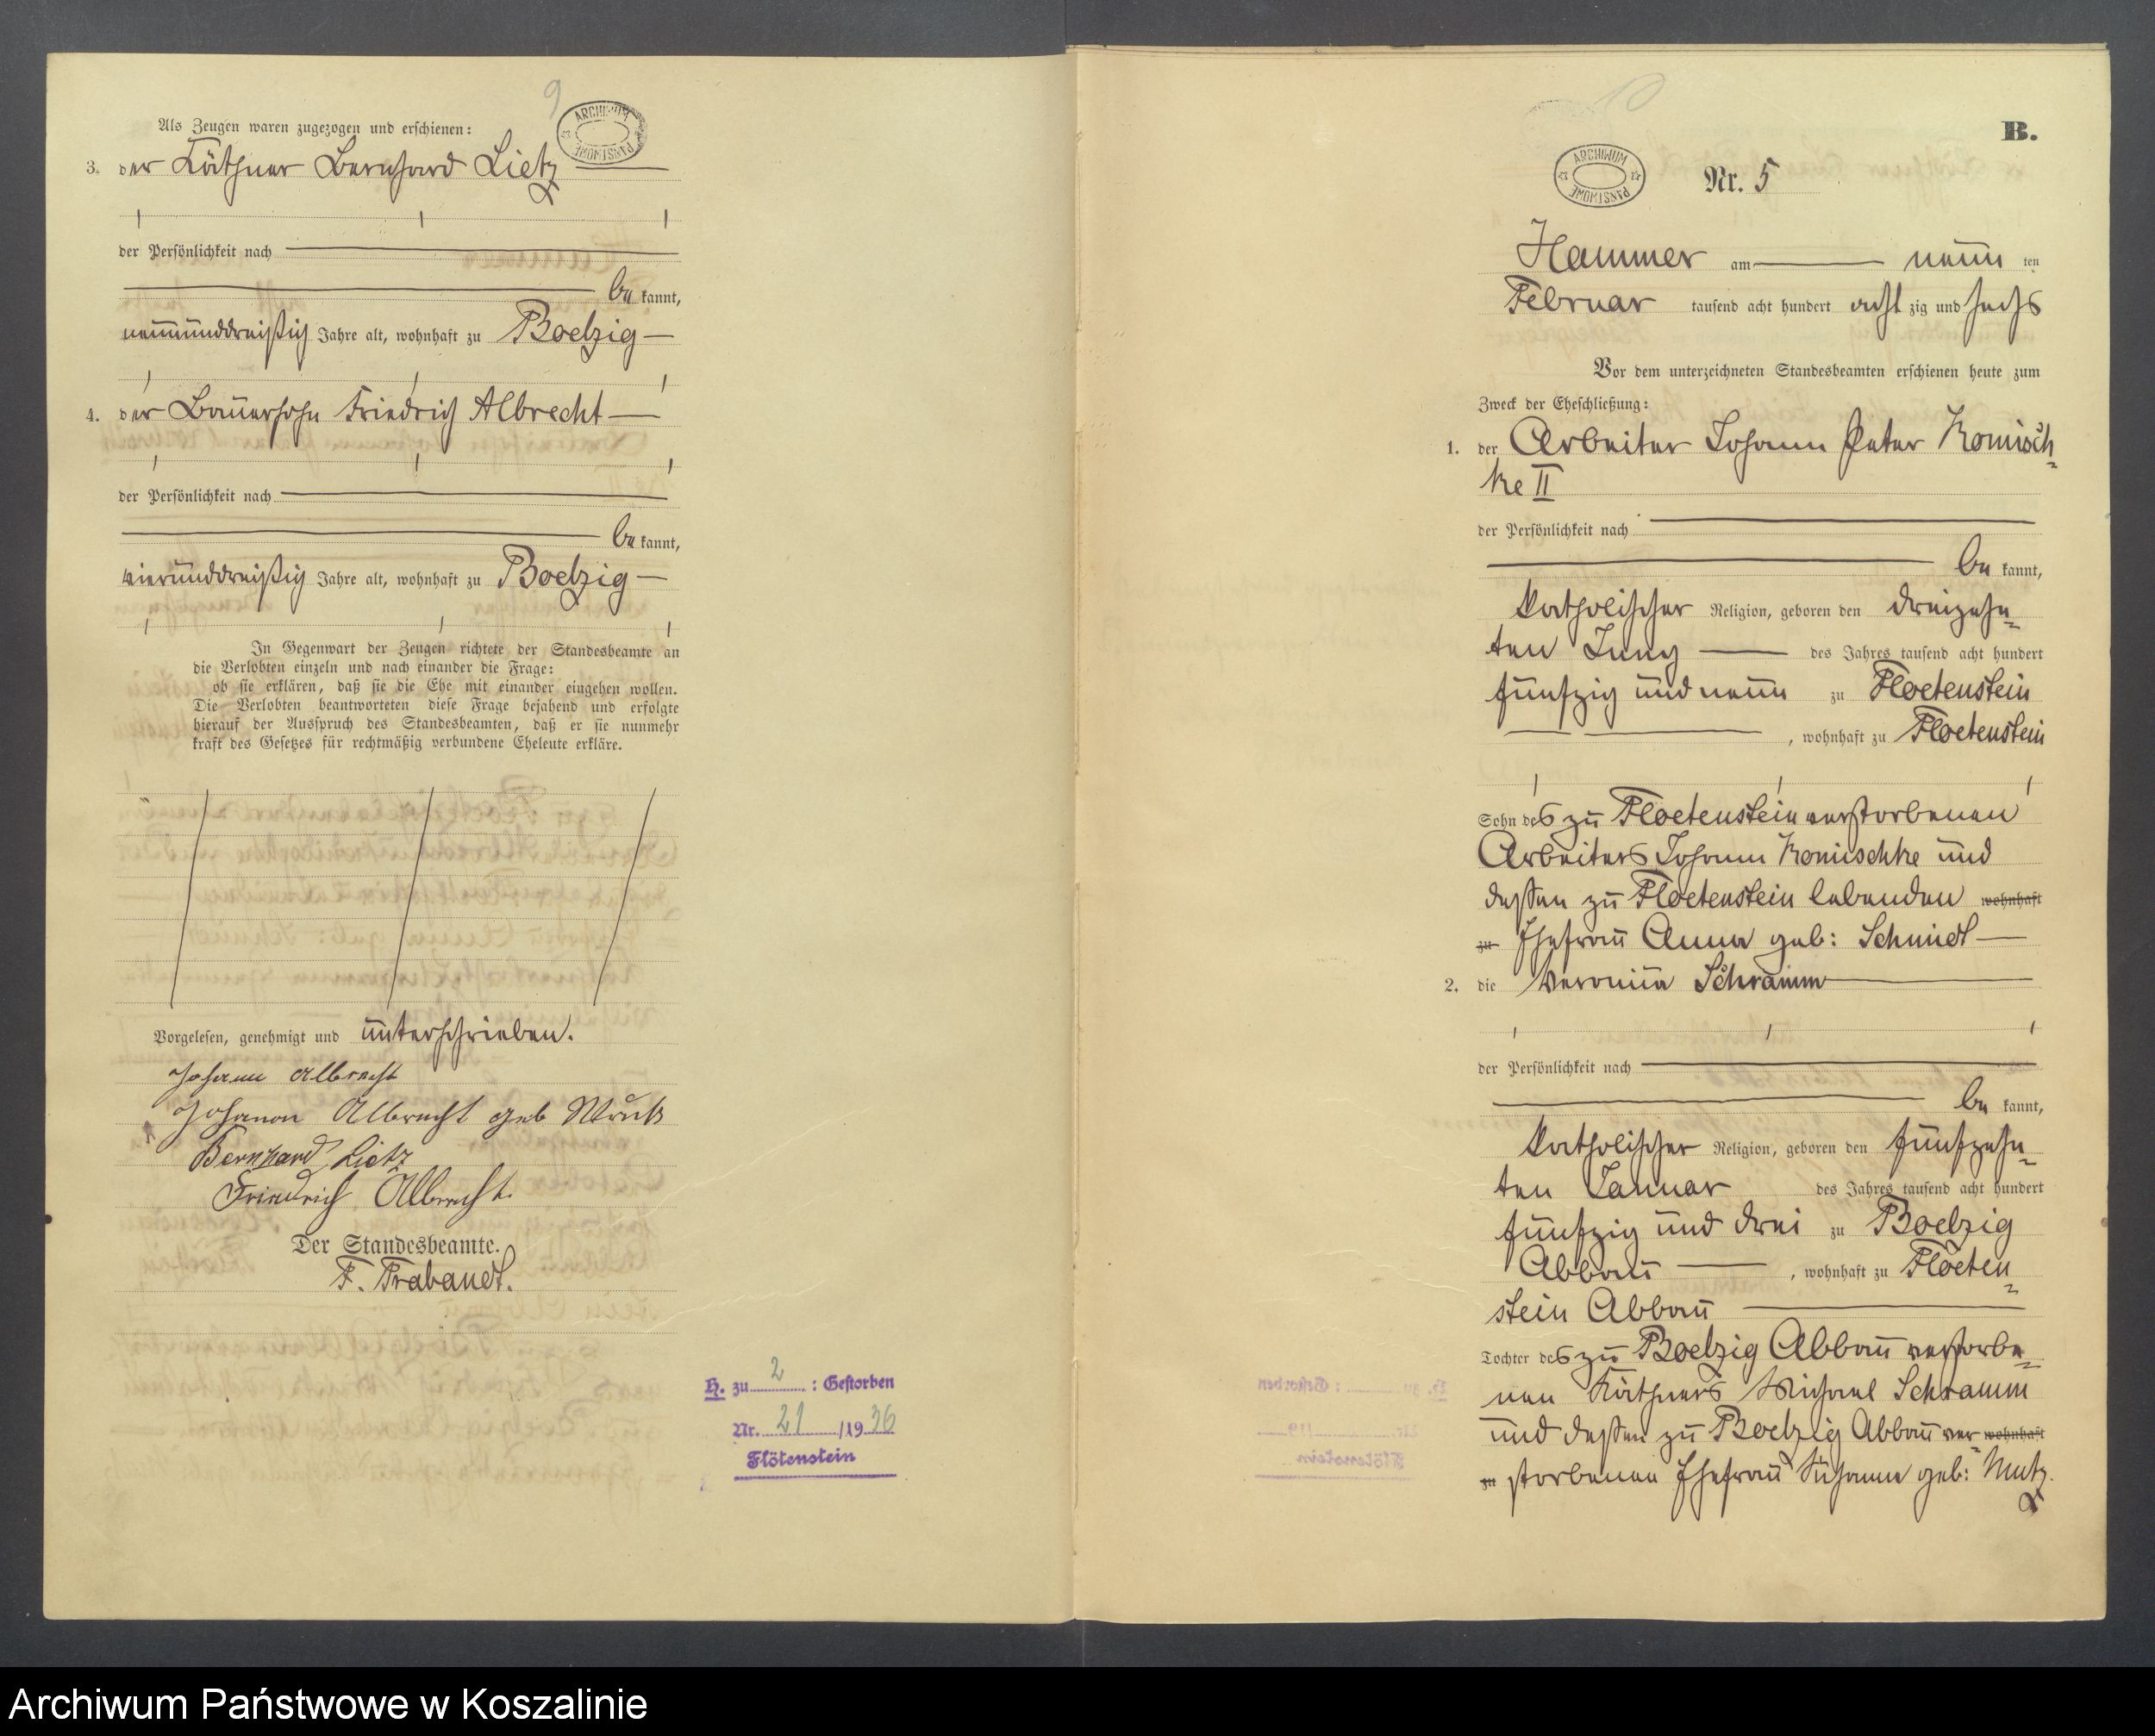 9
ARCHIWUM PAŃSTWOWE
Als Zeugen waren zugezogen und erschienen:
3. der Käthner Bernhard Lietz
der Persönlichkeit nach
be kannt,
neununddreißig Jahre alt, wohnhaft zu Boelzig
4. der Bauersohn Friedrich Albrecht
der Persönlichkeit nach
be kannt,
vierunddreißig Jahre alt, wohnhaft zu Boelzig
In Gegenwart der Zeugen richtete der Standesbeamte an
die Verlobten einzeln und nach einander die Frage:
ob sie erklären, daß sie die Ehe mit einander eingehen wollen.
Die Verlobten beantworteten diese Frage bejahend und erfolgte
hierauf der Ausspruch des Standesbeamten, daß er sie nunmehr
kraft des Gesetzes für rechtmäßig verbundene Eheleute erkläre.
Vorgelesen, genehmigt und unterschrieben.
Johann Albrecht
Albrecht geb
Bernhard Lietz
Friedrich Albrecht.
Der Standesbeamte.
F. Trabandt.
H. zu 2 : Gestorben
Nr. 21 /19 36
Flötenstein
B.
ARCHIWUM PAŃSTWOWE
Nr. 5
Hammer am neun ten
Februar tausend acht hundert acht zig und sechs
Vor dem unterzeichneten Standesbeamten erschienen heute zum
Zweck der Eheschließung:
1. der Arbeiter Johann Peter Komisch-
ke II
der Persönlichkeit nach
be kannt,
katholischer Religion, geboren den dreizehn-
ten Juny des Jahres tausend acht hundert
fünfzig und neun zu Floetenstein
, wohnhaft zu Floetenstein
Sohn des zu Floetenstein verstorbenen
Arbeiters Johann Komischke und
dessen zu Floetenstein lebenden wohnhaft
zu Ehefrau Anna geb: Schmidt
2. die Veronika Schramm
der Persönlichkeit nach
be kannt,
katholischer Religion, geboren den fünfzehn-
ten Januar des Jahres tausend acht hundert
fünfzig und drei zu Boelzig
Abbau , wohnhaft zu Floeten-
stein Abbau
Tochter des zu Boelzig Abbau verstorbe-
nen Käthners Michael Schramm
und dessen zu Boelzig Abbau ver- wohnhaft
zu storbenen Ehefrau Susanna geb: Mutz.
Archiwum Państwowe w Koszalinie